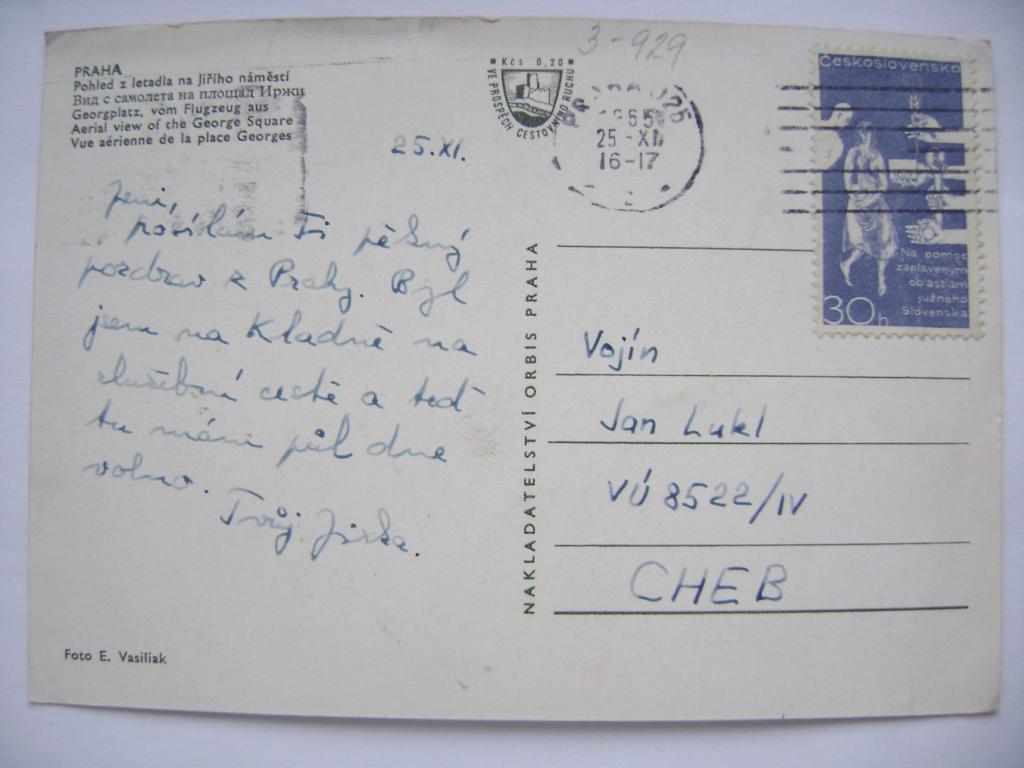 3-929
PRAHA
Pohled z letadla na Jiřího náměstí
Вид с самолета на площад Иржи
Georgplatz, vom Flugzeug aus
Aerial view of the George Square
Vue aérienne de la place Georges
Kčs 0,20
VE PROSPĚCH CESTOVNÍHO RUCHU
25-XI
16-17
Československo
Na pomoc
zaplaveným
oblastiam
južného
Slovenska
30h
25.XI.
posílám Ti pěkný
pozdrav z Prahy. Byl
jsem na Kladně na
služební cestě a teď
tu mám půl dne
volno.
Tvůj Jirka.
NAKLADATELSTVÍ ORBIS PRAHA
Vojín
Jan Lukl
VÚ 8522/IV
CHEB
Foto E. Vasiliak